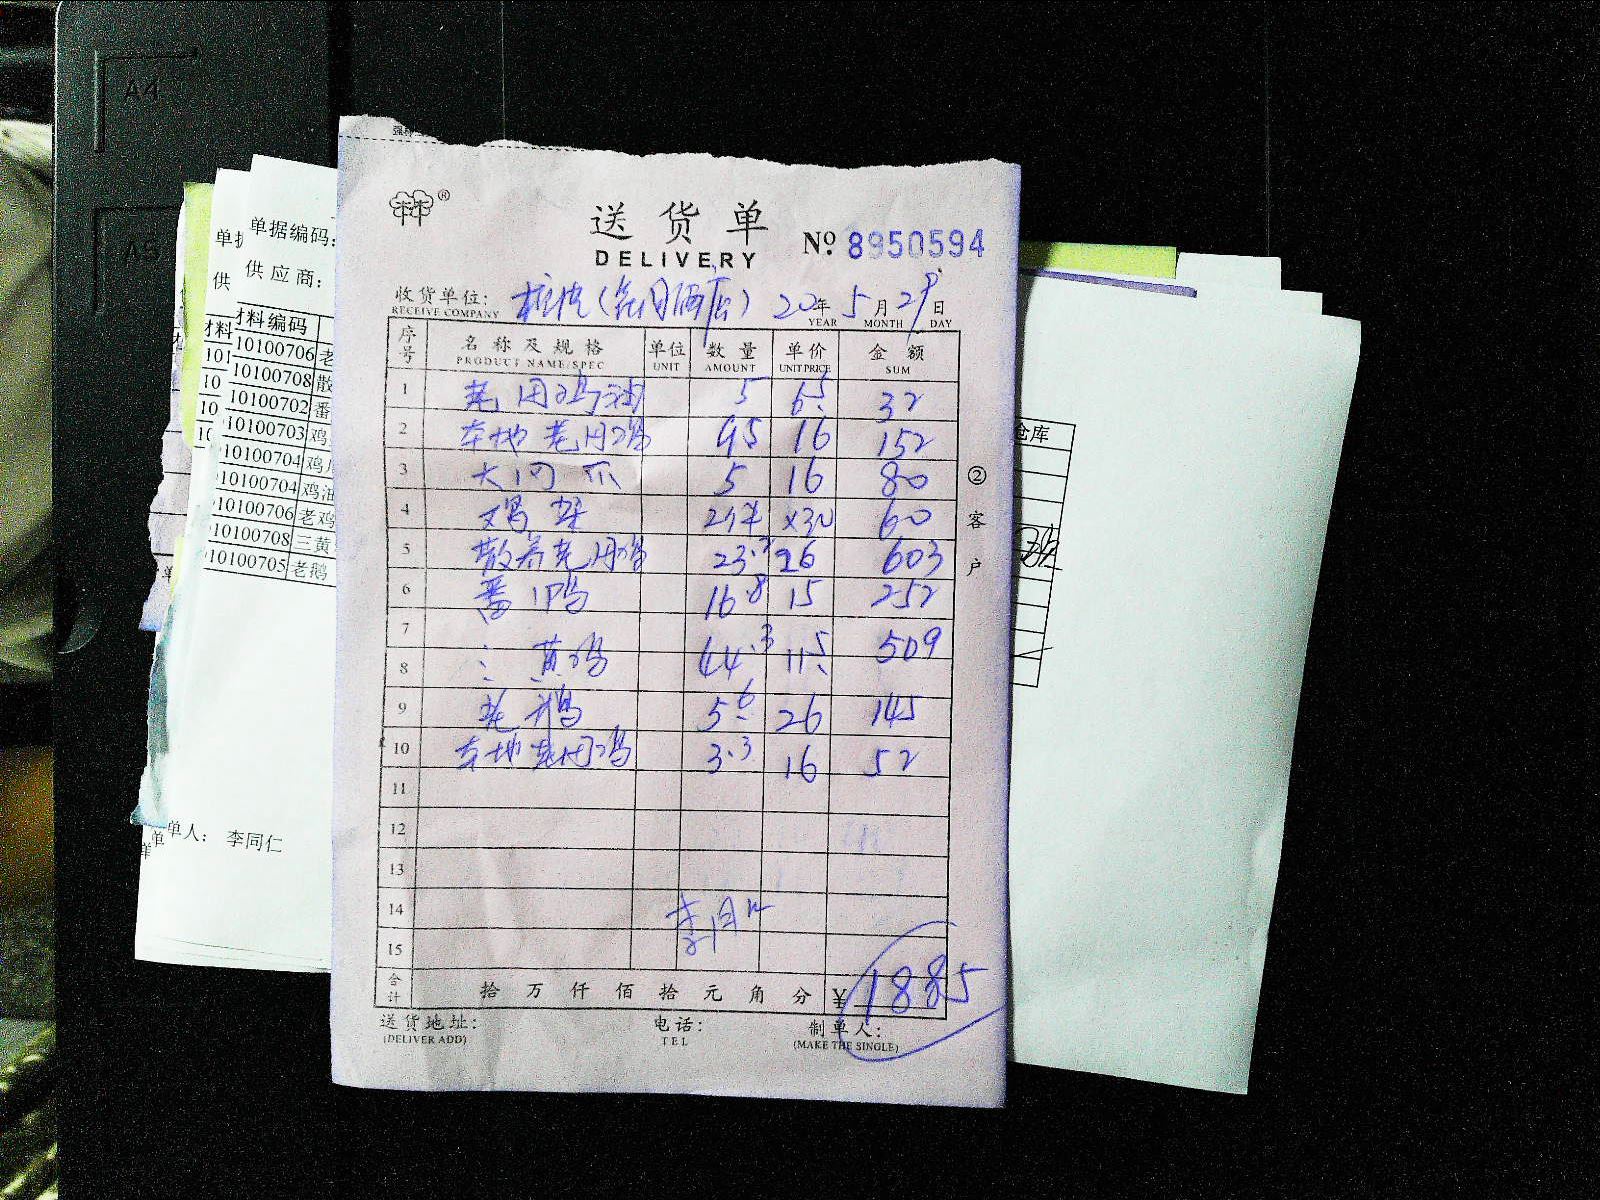 A4
A5
单据编码:
供应商:
材料编码
10100706 老
10100708 散
10100702 番
10100703 鸡
10100704 鸡
10100704 鸡油
10100706 老鸡
10100708 三黄
10100705 老鹅
单人: 李同仁
仓库
®
送货单
DELIVERY
No. 8950594
收货单位: (酒店) 20年 5月 29日
RECEIVE COMPANY YEAR MONTH DAY
序号 名称及规格 单位 数量 单价 金额
PRODUCT NAME/SPEC UNIT AMOUNT UNIT PRICE SUM
1 老用鸡油 5 6.5 32
2 本地老用鸡 9.5 16 152
3 大 爪 5 16 80
4 鸡架 2件 x30 60
5 散养老用鸡 23.2 26 603
6 番鸭 16.8 15 252
7
8 三黄鸡 44.3 11.5 509
9 老鹅 5.6 26 145
10 本地老用鸡 3.3 16 52
11
12
13
14
15
李同仁
合计 拾 万 仟 佰 拾 元 角 分 ¥ 1885
送货地址: 电话: 制单人:
(DELIVER ADD) TEL (MAKE THE SINGLE)
② 客户